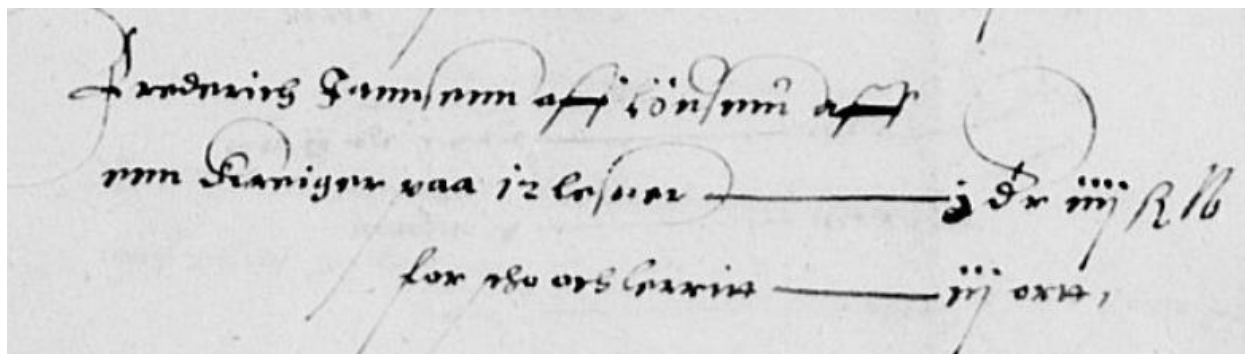 Frederich Jannsenn aff Lönsenn aff
enn Kreiger paa 12 lester j dr iiij ß lb
for sho och lerritt iij ortt,